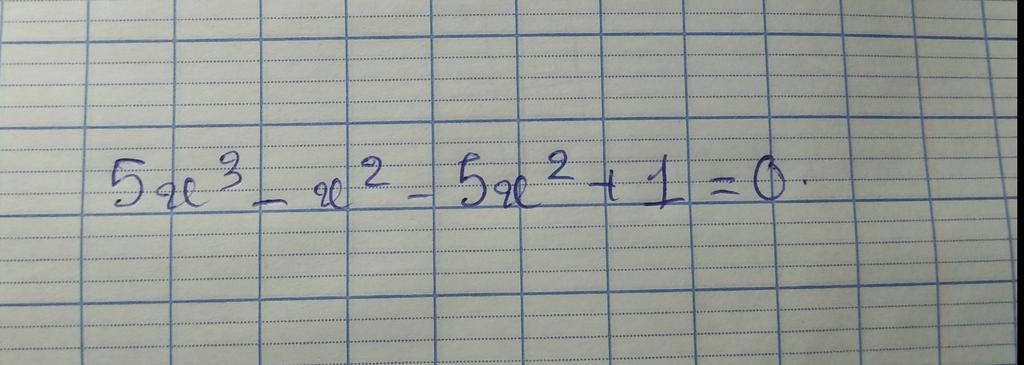 5x³ - x² - 5x² + 1 = 0.